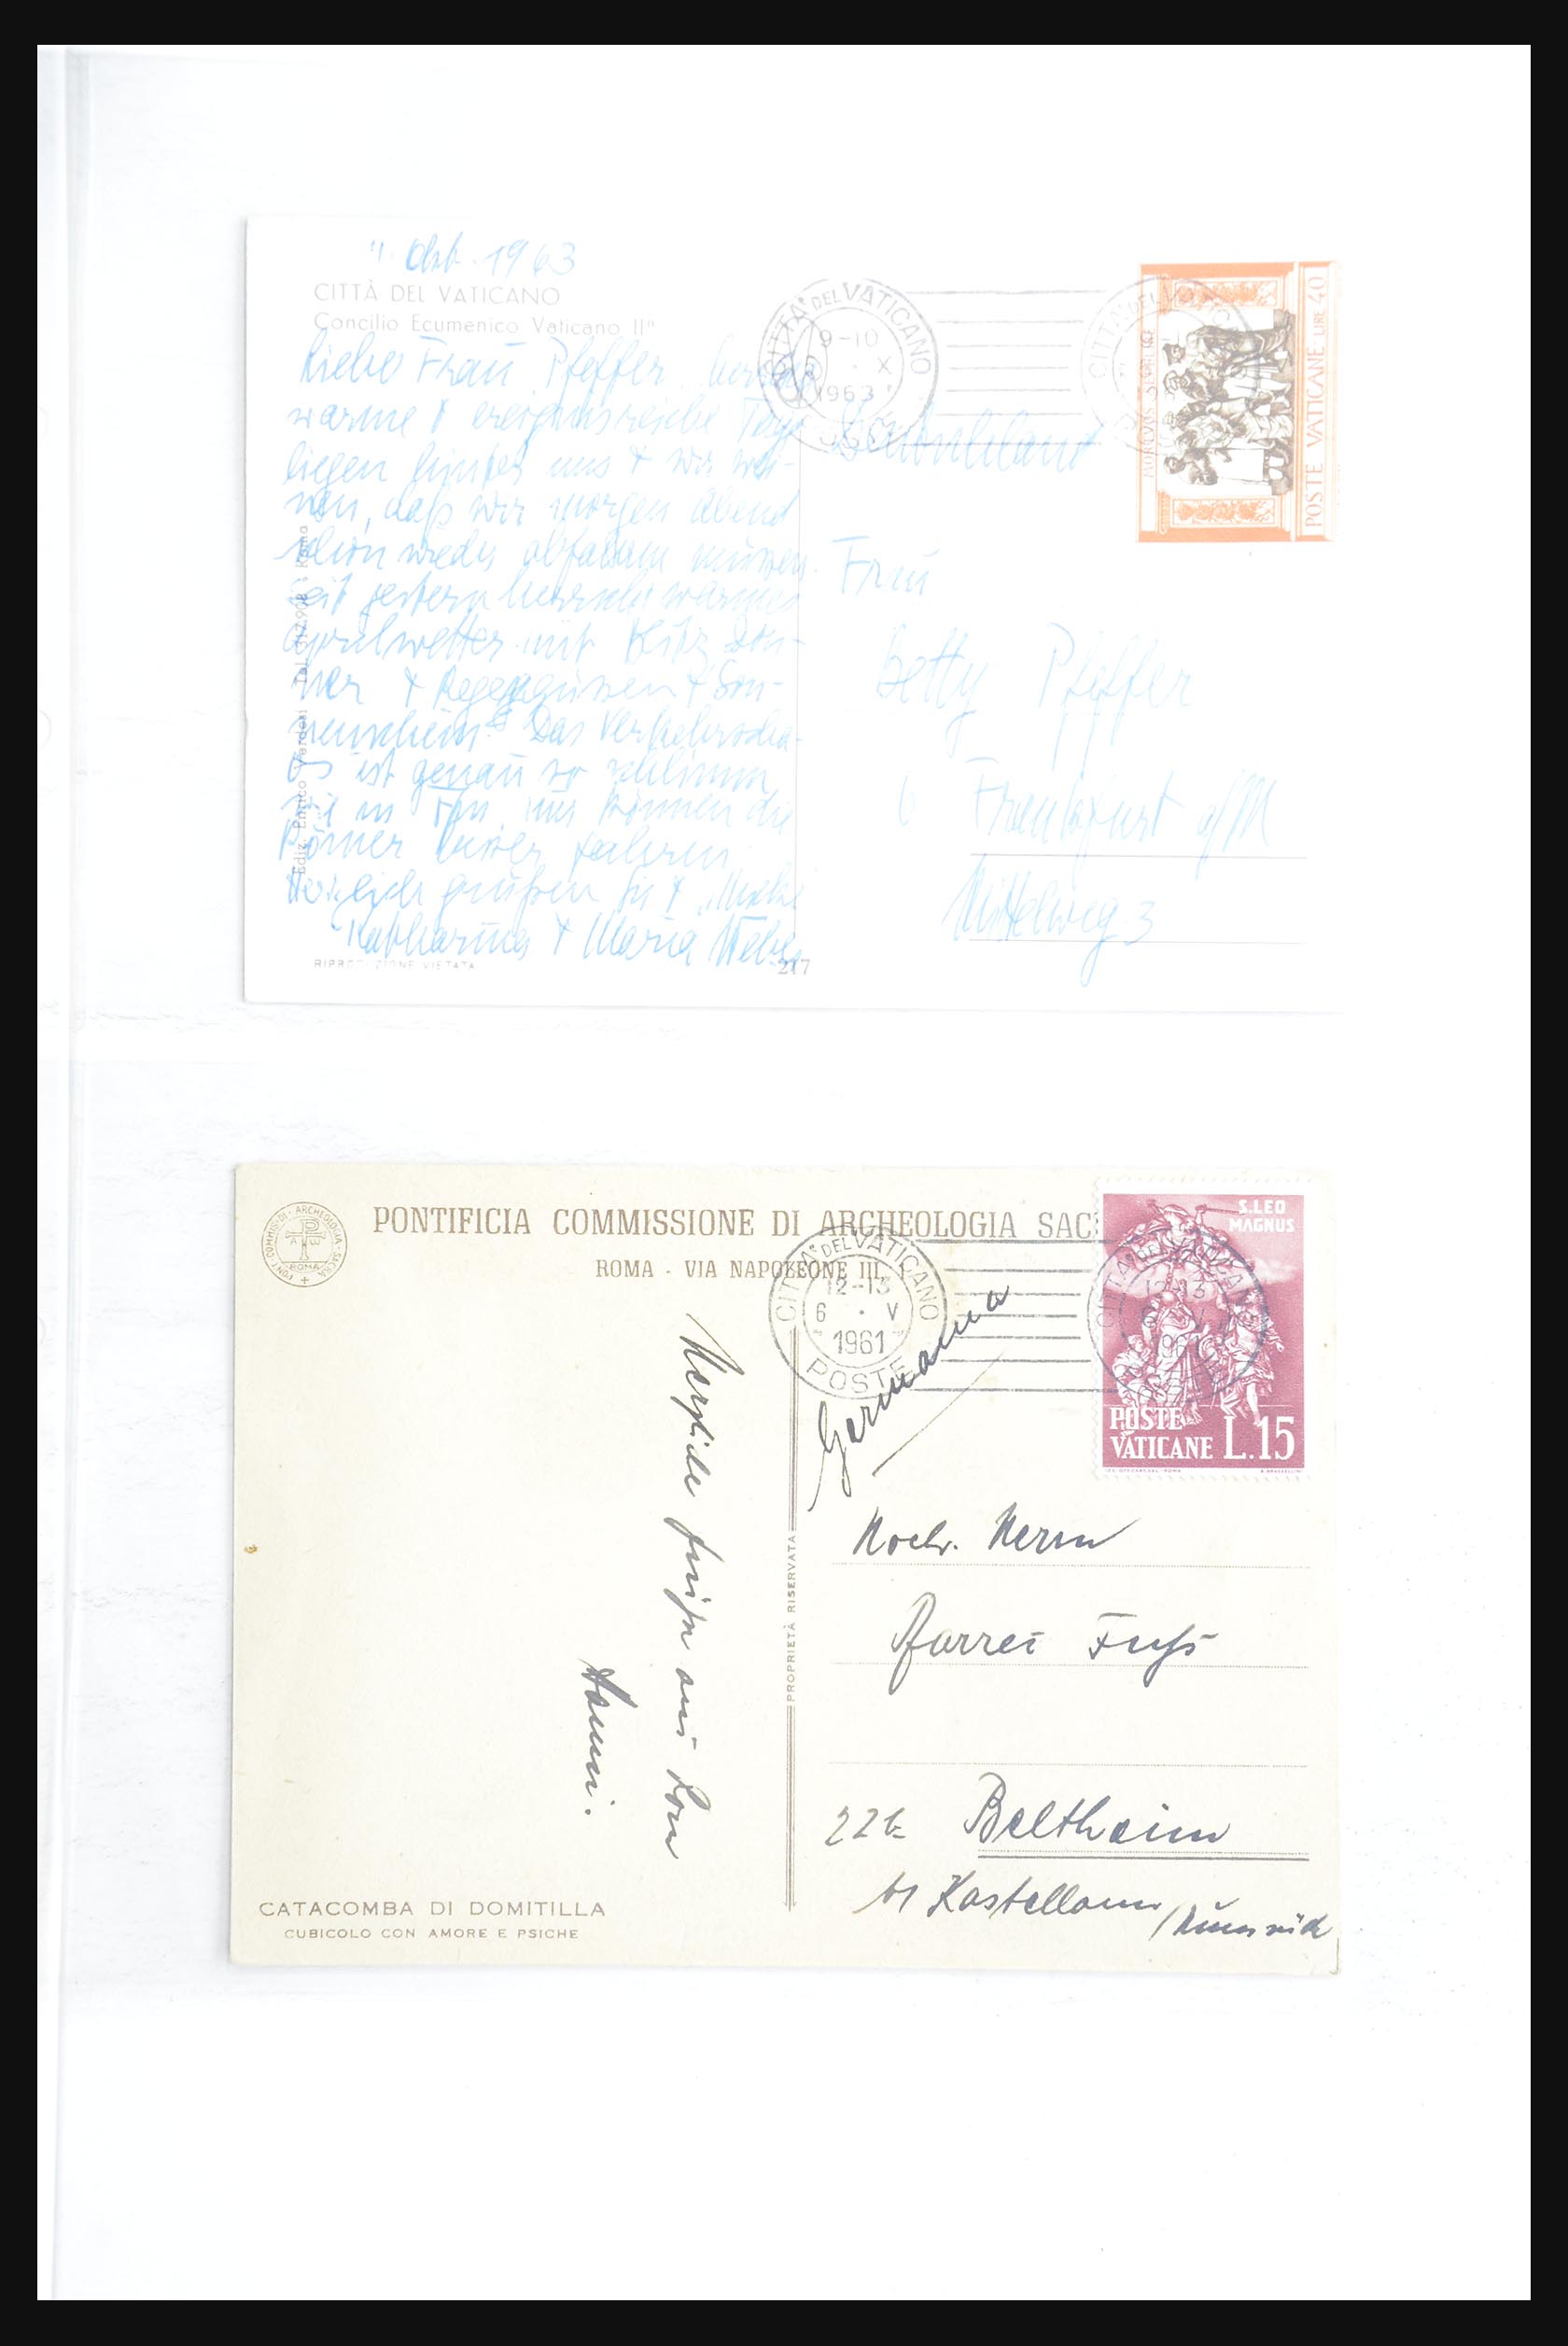 Okt. 1963
CITTÀ DEL VATICANO
Concilio Ecumenico Vaticano II°
Liebe Frau Pfeffer,
warme & ereignisreiche Tage
liegen hinter uns & wir
daß wir morgen Abend
schon wieder abfahren müssen.
Seit gestern herrscht warmes
Aprilwetter mit Blitz Don-
ner & Regengüssen & Son-
nenschein. Das Verkehrscha-
os ist genau so schlimm
wie in nur können die
Römer besser fahren.
Herzlich grüßen Sie &
Katharina & Maria Weber
RIPRODUZIONE VIETATA
217
Ediz. Enrico Verdesi - Tel. 317.908 - Roma
CITTA' DEL VATICANO
9-10
X
1963
POSTE
CITTA' DEL VATICANO
Deutschland
POSTE VATICANE LIRE 40
Frau
Betty Pfeffer
6 Frankfurt a/M
Mittelweg 3
PONT. COMMISS. DI ARCHEOLOGIA SACRA
ROMA
PONTIFICIA COMMISSIONE DI ARCHEOLOGIA SAC
ROMA - VIA NAPOLEONE III,
CITTA' DEL VATICANO
12-13
6 · V
1961
POSTE
S.LEO
MAGNUS
CITTA' DEL VATICANO
12-13
6 V
1961
POSTE
VATICANE L.15
Germania
Herzliche Grüße aus Rom
Hanni.
PROPRIETÀ RISERVATA
Hochw. Herrn
Pfarrer Fuhs
22b Beltheim
bei Kastellaun
/Hunsrück
CATACOMBA DI DOMITILLA
CUBICOLO CON AMORE E PSICHE